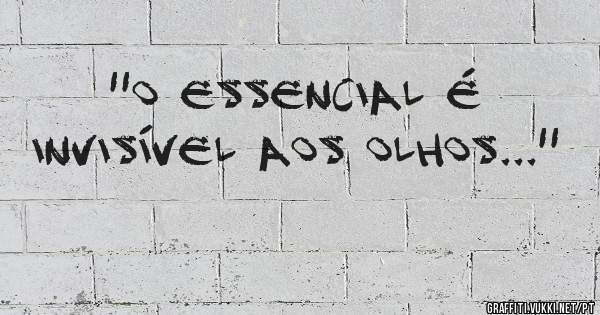 "O ESSENCIAL É
INVISÍVEL AOS OLHOS..."
GRAFFITI.VUKKI.NET/PT